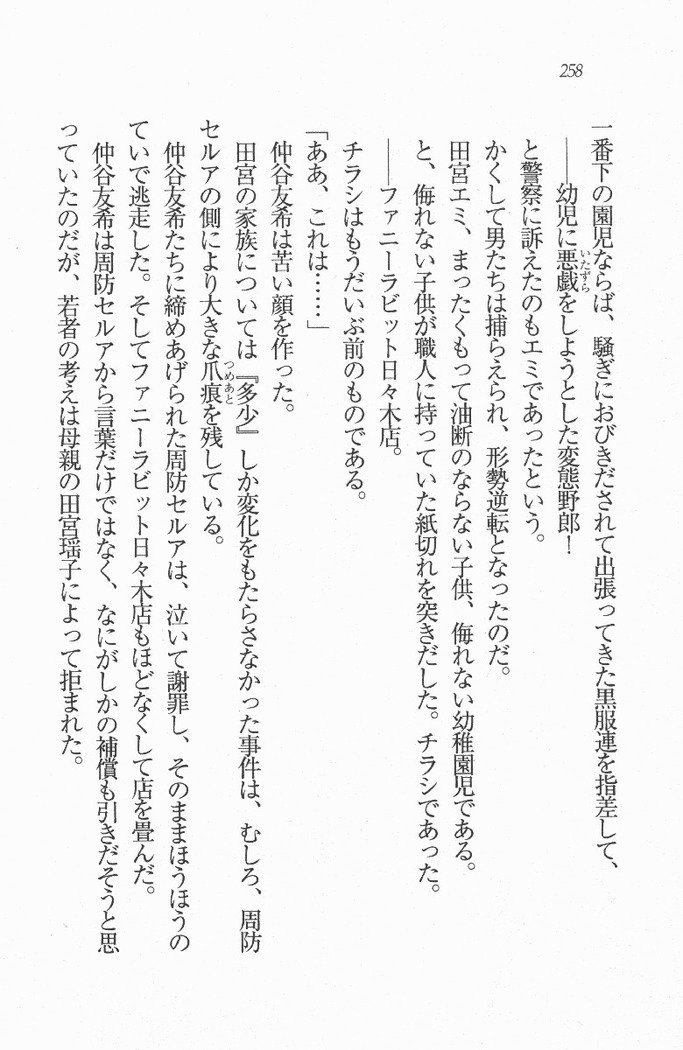 258
一番下の園児ならば、騒ぎにおびきだされて出張ってきた黒服連を指差して、
――幼児に悪戯をしようとした変態野郎！
いたずら
と警察に訴えたのもエミであったという。
かくして男たちは捕らえられ、形勢逆転となったのだ。
田宮エミ、まったくもって油断のならない子供、侮れない幼稚園児である。
と、侮れない子供が職人に持っていた紙切れを突きだした。チラシであった。
――ファニーラビット日々木店。
チラシはもうだいぶ前のものである。
「ああ、これは……」
仲谷友希は苦い顔を作った。
田宮の家族については『多少』しか変化をもたらさなかった事件は、むしろ、周防
セルアの側により大きな爪痕を残している。
つめあと
仲谷友希たちに締めあげられた周防セルアは、泣いて謝罪し、そのままほうほうの
ていで逃走した。そしてファニーラビット日々木店もほどなくして店を畳んだ。
仲谷友希は周防セルアから言葉だけではなく、なにがしかの補償も引きだそうと思
っていたのだが、若者の考えは母親の田宮瑶子によって拒まれた。